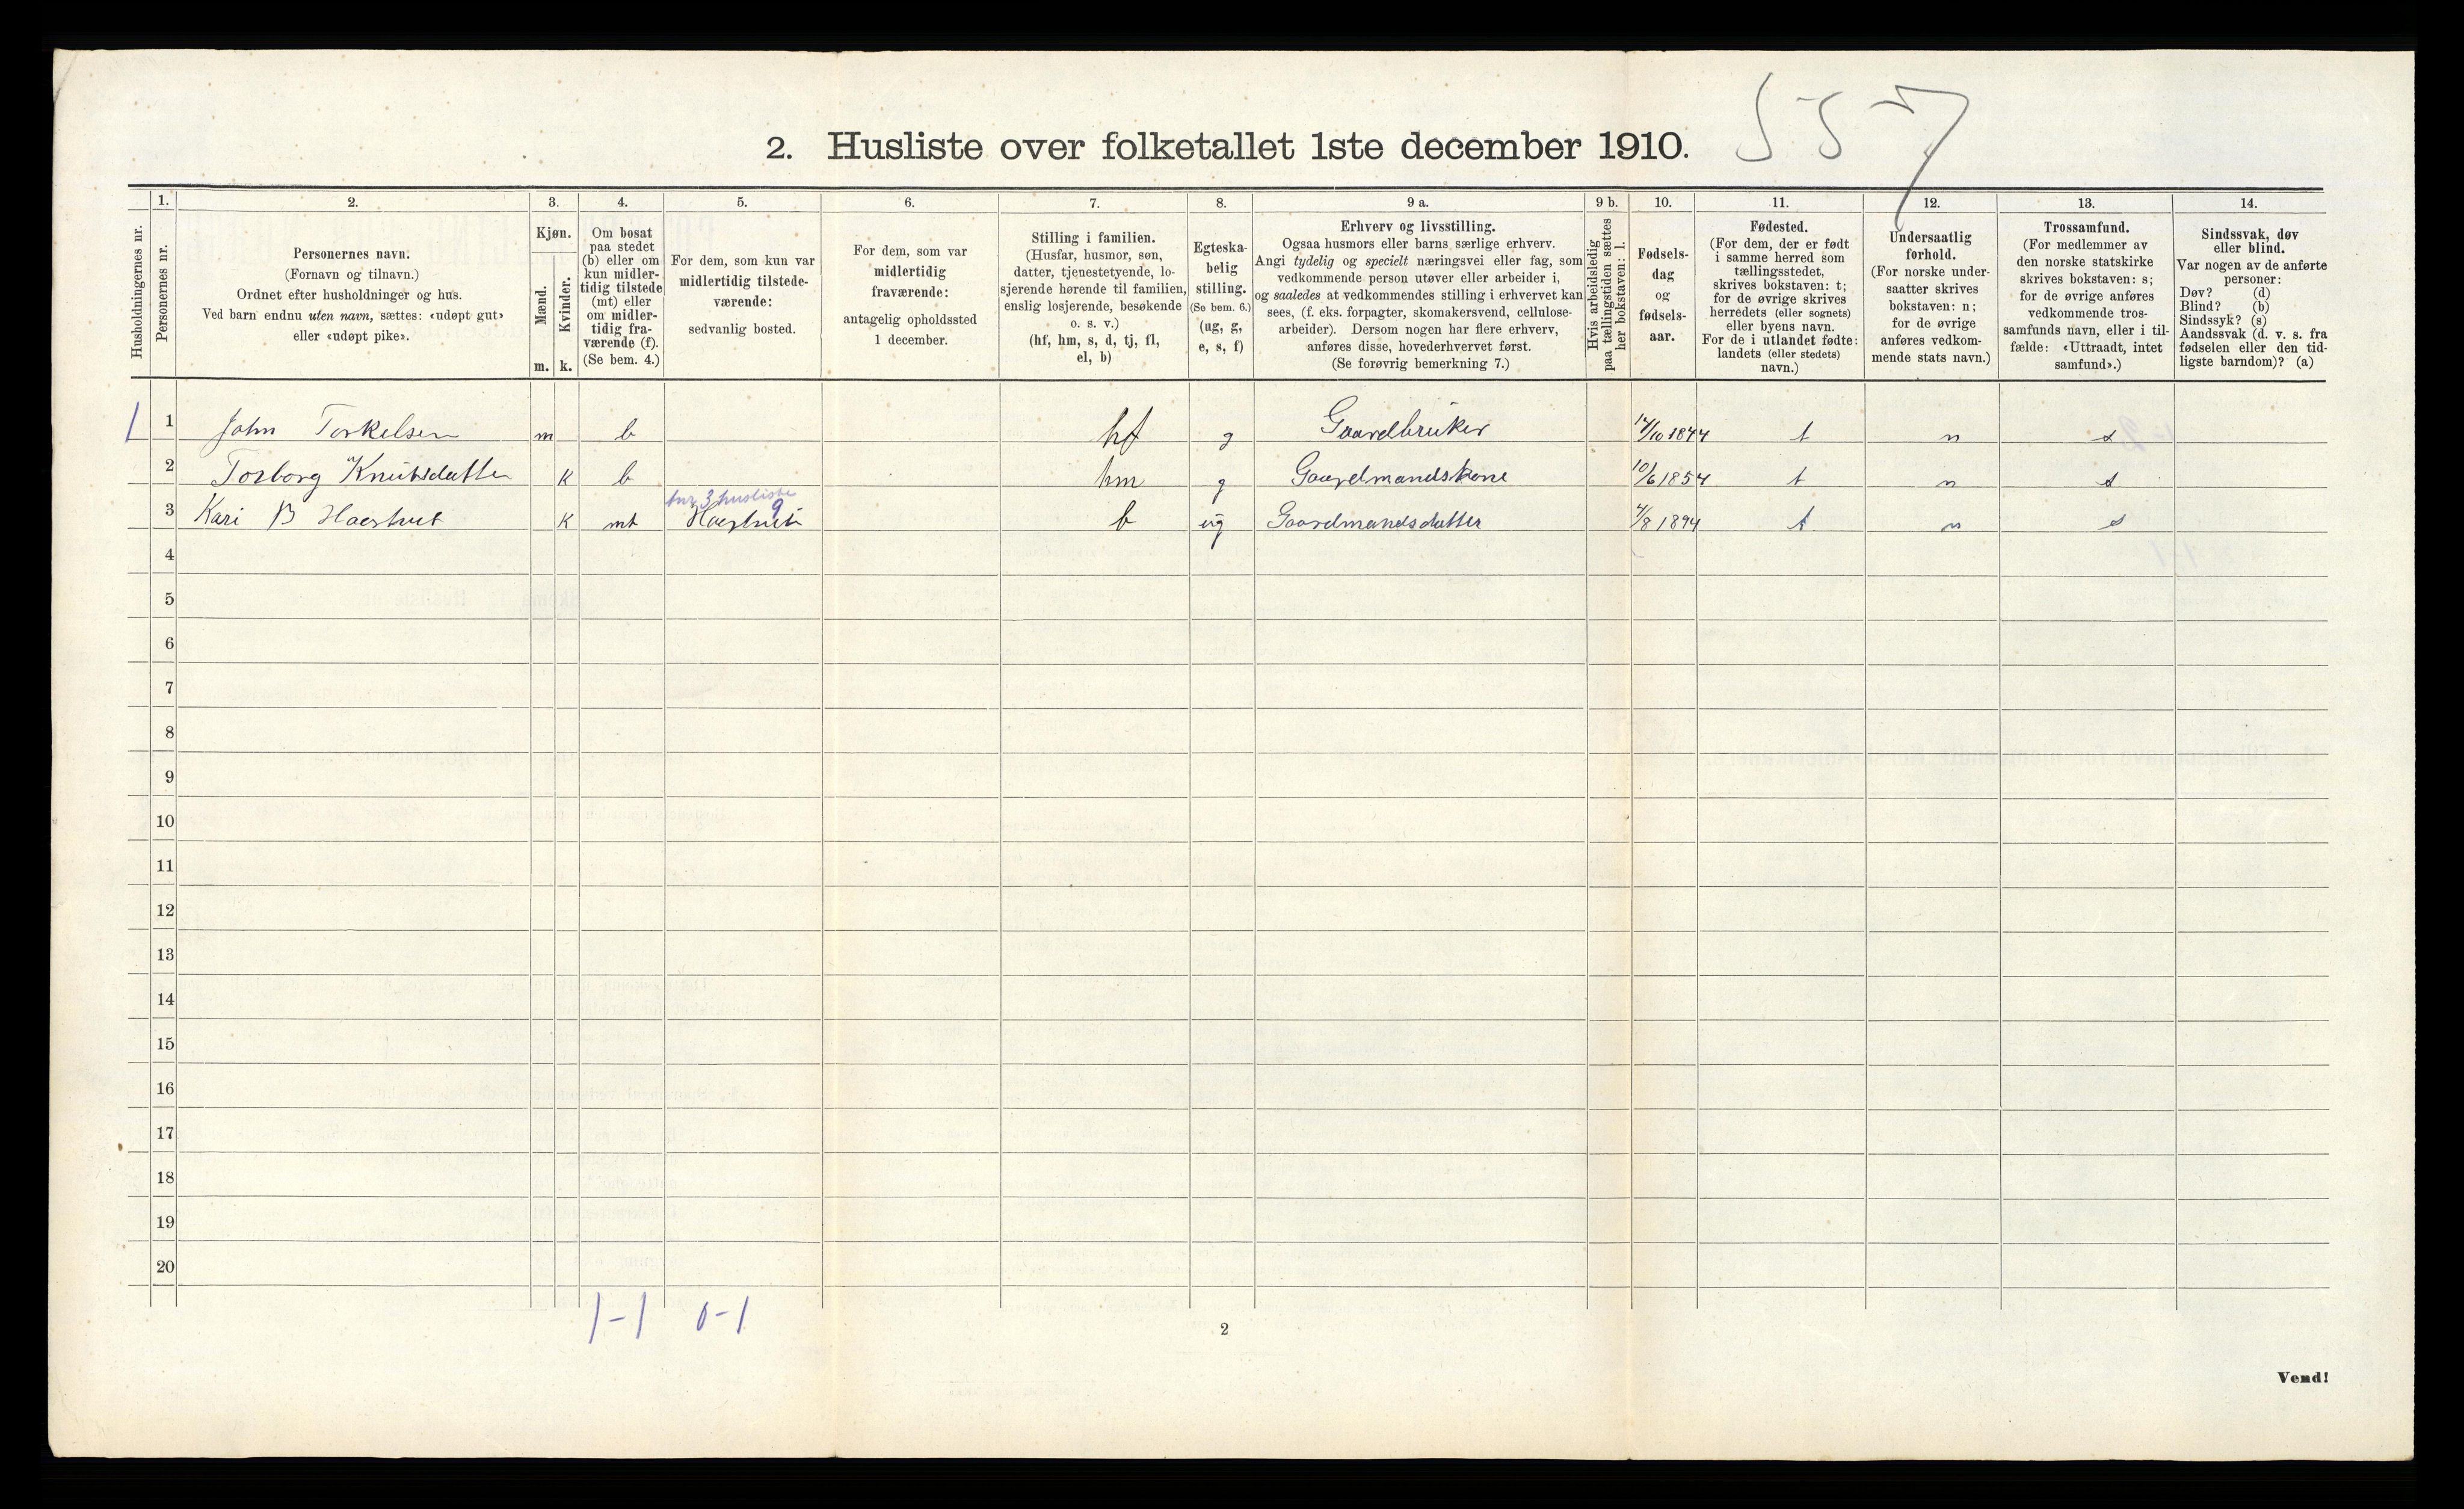 557
2. Husliste over folketallet 1ste december 1910.
Husholdningernes nr.
1.
Personernes nr.
2.
Personernes navn.
(Fornavn og tilnavn.)
Ordnet efter husholdninger og hus.
Ved barn endnu uten navn, sættes: «udøpt gut»
eller «udøpt pike».
3.
Kjøn.
Mænd.
Kvinder.
m. k.
4.
Om bosat
paa stedet
(b) eller om
kun midler-
tidig tilstede
(mt) eller
om midler-
tidig fra-
værende (f).
(Se bem. 4.)
5.
For dem, som kun var
midlertidig tilstede-
værende:
sedvanlig bosted.
6.
For dem, som var
midlertidig
fraværende:
antagelig opholdssted
1 december.
7.
Stilling i familien.
(Husfar, husmor, søn,
datter, tjenestetyende, lo-
sjerende hørende til familien,
enslig losjerende, besøkende
o. s. v.)
(hf, hm, s, d, tj, fl,
el, b)
8.
Egteska-
belig
stilling.
(Se bem. 6.)
(ug, g,
e, s, f)
9 a.
Erhverv og livsstilling.
Ogsaa husmors eller barns særlige erhverv.
Angi tydelig og specielt næringsvei eller fag, som
vedkommende person utøver eller arbeider i,
og saaledes at vedkommendes stilling i erhvervet kan
sees, (f. eks. forpagter, skomakersvend, cellulose-
arbeider). Dersom nogen har flere erhverv,
anføres disse, hovederhvervet først.
(Se forøvrig bemerkning 7.)
9 b.
Hvis arbeidsledig
paa tællingstiden sættes
her bokstaven: l.
10.
Fødsels-
dag
og
fødsels-
aar.
11.
Fødested.
(For dem, der er født
i samme herred som
tællingsstedet,
skrives bokstaven: t;
for de øvrige skrives
herredets (eller sognets)
eller byens navn.
For de i utlandet fødte:
landets (eller stedets)
navn.)
12.
Undersaatlig
forhold.
(For norske under-
saatter skrives
bokstaven: n;
for de øvrige
anføres vedkom-
mende stats navn.)
13.
Trossamfund.
(For medlemmer av
den norske statskirke
skrives bokstaven: s;
for de øvrige anføres
vedkommende tros-
samfunds navn, eller i til-
fælde: «Uttraadt, intet
samfund».)
14.
Sindssvak, døv
eller blind.
Var nogen av de anførte
personer:
Døv? (d)
Blind? (b)
Sindssyk? (s)
Aandssvak (d. v. s. fra
fødselen eller den tid-
ligste barndom)? (a)
1 1 John Torkelsen m b hf g Gaardbruker 14/10 1844 t n s
2 Torborg Knutsdatter k b hm g Gaardmandskone 10/6 1854 t n s
husliste 9
3 Kari B Haeshut k mt Haeshut b ug Gaardmandsdatter 4/8 1894 t n s
4
5
6
7
8
9
10
11
12
13
14
15
16
17
18
19
20
1-1 0-1
2
Vend!